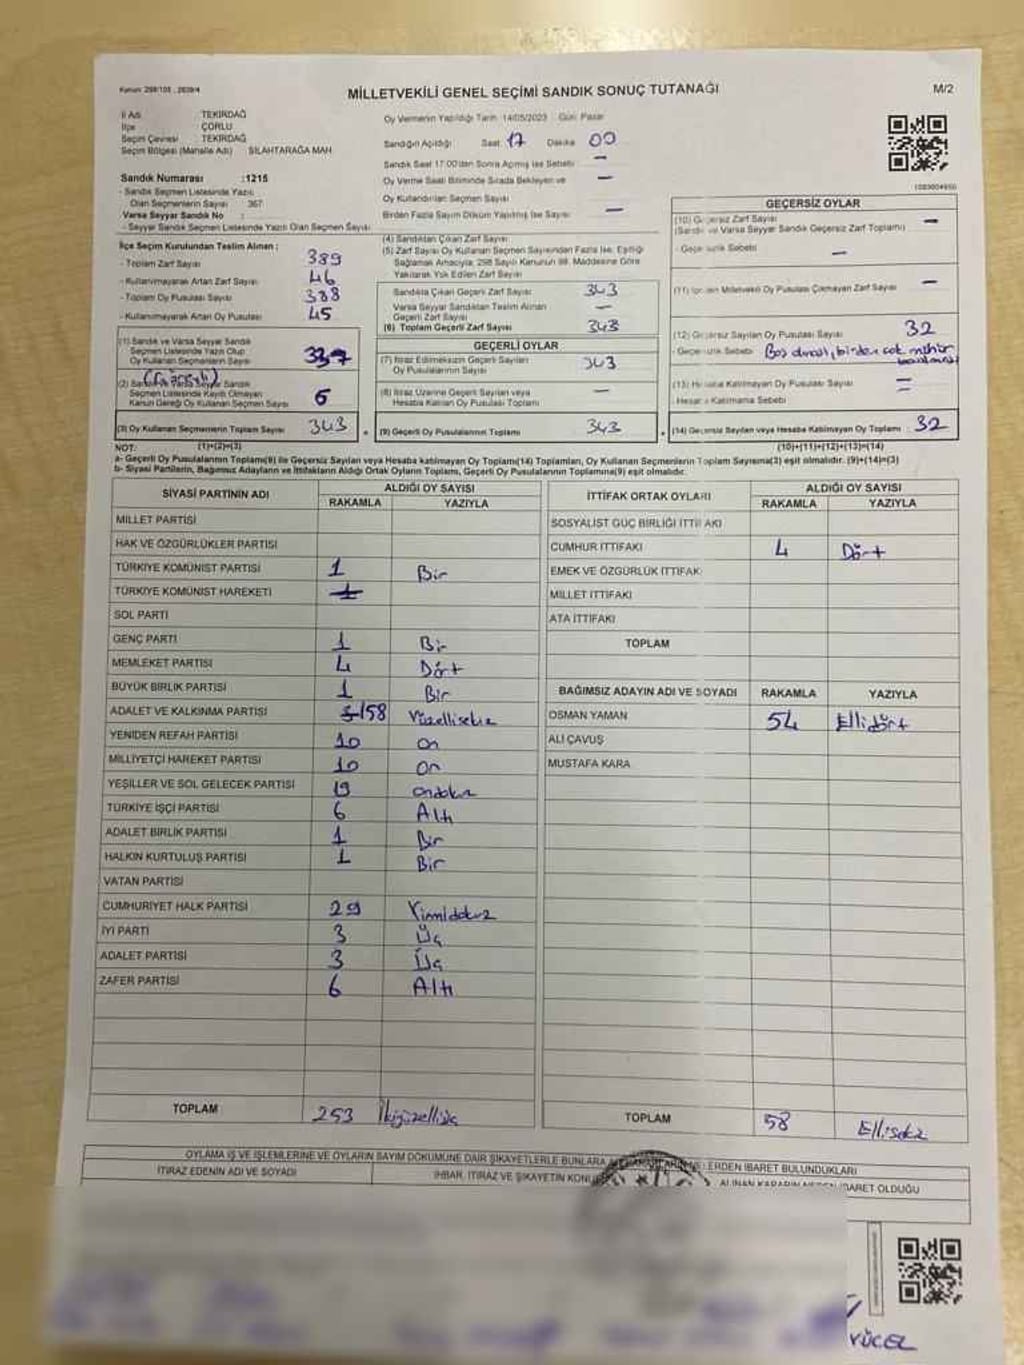 Kanun: 298/105, 2839/4
MİLLETVEKİLİ GENEL SEÇİMİ SANDIK SONUÇ TUTANAĞI
M/2
İl Adı : TEKİRDAĞ
İlçe : ÇORLU
Seçim Çevresi : TEKİRDAĞ
Seçim Bölgesi (Mahalle Adı) : SİLAHTARAĞA MAH.
Sandık Numarası :1215
- Sandık Seçmen Listesinde Yazılı
Olan Seçmenlerin Sayısı : 367
Varsa Seyyar Sandık No :
- Seyyar Sandık Seçmen Listesinde Yazılı Olan Seçmen Sayısı
Oy Vermenin Yapıldığı Tarih: 14/05/2023 Gün: Pazar
Sandığın Açıldığı Saat: 17 Dakika: 00
Sandık Saat 17:00'dan Sonra Açılmış İse Sebebi : —
Oy Verme Saati Bitiminde Sırada Bekleyen ve —
Oy Kullandırılan Seçmen Sayısı
Birden Fazla Sayım Döküm Yapılmış İse Sayısı : —
İlçe Seçim Kurulundan Teslim Alınan ;
- Toplam Zarf Sayısı : 389
- Kullanılmayarak Artan Zarf Sayısı : 46
- Toplam Oy Pusulası Sayısı : 388
- Kullanılmayarak Artan Oy Pusulası : 45
(1) Sandık ve Varsa Seyyar Sandık
Seçmen Listesinde Yazılı Olup
Oy Kullanan Seçmenlerin Sayısı 337
(2) Sandık ve Varsa Seyyar Sandık
Seçmen Listesinde Kayıtlı Olmayan
Kanun Gereği Oy Kullanan Seçmen Sayısı 6
(3) Oy Kullanan Seçmenlerin Toplam Sayısı : 343
(4) Sandıktan Çıkan Zarf Sayısı
(5) Zarf Sayısı Oy Kullanan Seçmen Sayısından Fazla İse, Eşitliği
Sağlamak Amacıyla, 298 Sayılı Kanunun 98. Maddesine Göre
Yakılarak Yok Edilen Zarf Sayısı
Sandıkta Çıkan Geçerli Zarf Sayısı : 343
Varsa Seyyar Sandıktan Teslim Alınan —
Geçerli Zarf Sayısı
(6) Toplam Geçerli Zarf Sayısı : 343
GEÇERLİ OYLAR
(7) İtiraz Edilmeksizin Geçerli Sayılan
Oy Pusulalarının Sayısı : 343
(8) İtiraz Üzerine Geçerli Sayılan veya
Hesaba Katılan Oy Pusulası Toplamı : —
(9) Geçerli Oy Pusulalarının Toplamı : 343
1083004950
GEÇERSİZ OYLAR
(10) Geçersiz Zarf Sayısı : —
(Sandık ve Varsa Seyyar Sandık Geçersiz Zarf Toplamı)
- Geçersizlik Sebebi : —
(11) İçinden Milletvekili Oy Pusulası Çıkmayan Zarf Sayısı : —
(12) Geçersiz Sayılan Oy Pusulası Sayısı : 32
- Geçersizlik Sebebi : Boş olması, birden çok mühür
(13) Hesaba Katılmayan Oy Pusulası Sayısı : —
- Hesaba Katılmama Sebebi : —
(14) Geçersiz Sayılan veya Hesaba Katılmayan Oy Toplamı : 32
NOT: (1)+(2)=(3) (10)+(11)+(12)+(13)=(14)
a- Geçerli Oy Pusulalarının Toplamı(9) ile Geçersiz Sayılan veya Hesaba katılmayan Oy Toplamı(14) Toplamları, Oy Kullanan Seçmenlerin Toplam Sayısına(3) eşit olmalıdır. (9)+(14)=(3)
b- Siyasi Partilerin, Bağımsız Adayların ve İttifakların Aldığı Ortak Oyların Toplamı, Geçerli Oy Pusulalarının Toplamına(9) eşit olmalıdır.
SİYASİ PARTİNİN ADI ALDIĞI OY SAYISI
RAKAMLA YAZIYLA
MİLLET PARTİSİ
HAK VE ÖZGÜRLÜKLER PARTİSİ
TÜRKİYE KOMÜNİST PARTİSİ 1 Bir
TÜRKİYE KOMÜNİST HAREKETİ 1
SOL PARTİ
GENÇ PARTİ 1 Bir
MEMLEKET PARTİSİ 4 Dört
BÜYÜK BİRLİK PARTİSİ 1 Bir
ADALET VE KALKINMA PARTİSİ 158 Yüzellisekiz
YENİDEN REFAH PARTİSİ 10 On
MİLLİYETÇİ HAREKET PARTİSİ 10 On
YEŞİLLER VE SOL GELECEK PARTİSİ 19 Ondokuz
TÜRKİYE İŞÇİ PARTİSİ 6 Altı
ADALET BİRLİK PARTİSİ 1 Bir
HALKIN KURTULUŞ PARTİSİ 1 Bir
VATAN PARTİSİ
CUMHURİYET HALK PARTİSİ 29 Yirmidokuz
İYİ PARTİ 3 Üç
ADALET PARTİSİ 3 Üç
ZAFER PARTİSİ 6 Altı
TOPLAM 253 İkiyüzelliüç
İTTİFAK ORTAK OYLARI ALDIĞI OY SAYISI
RAKAMLA YAZIYLA
SOSYALİST GÜÇ BİRLİĞİ İTTİFAKI
CUMHUR İTTİFAKI 4 Dört
EMEK VE ÖZGÜRLÜK İTTİFAKI
MİLLET İTTİFAKI
ATA İTTİFAKI
TOPLAM
BAĞIMSIZ ADAYIN ADI VE SOYADI RAKAMLA YAZIYLA
OSMAN YAMAN 54 Ellidört
ALİ ÇAVUŞ
MUSTAFA KARA
TOPLAM 58 Ellisekiz
OYLAMA İŞ VE İŞLEMLERİNE VE OYLARIN SAYIM DÖKÜMÜNE DAİR ŞİKAYETLERLE BUNLARA ERDEN İBARET BULUNDUKLARI
İTİRAZ EDENİN ADI VE SOYADI
İHBAR, İTİRAZ VE ŞİKAYETİN KONUSU
ALINAN KARARIN NEDEN İBARET OLDUĞU
YÜCEL